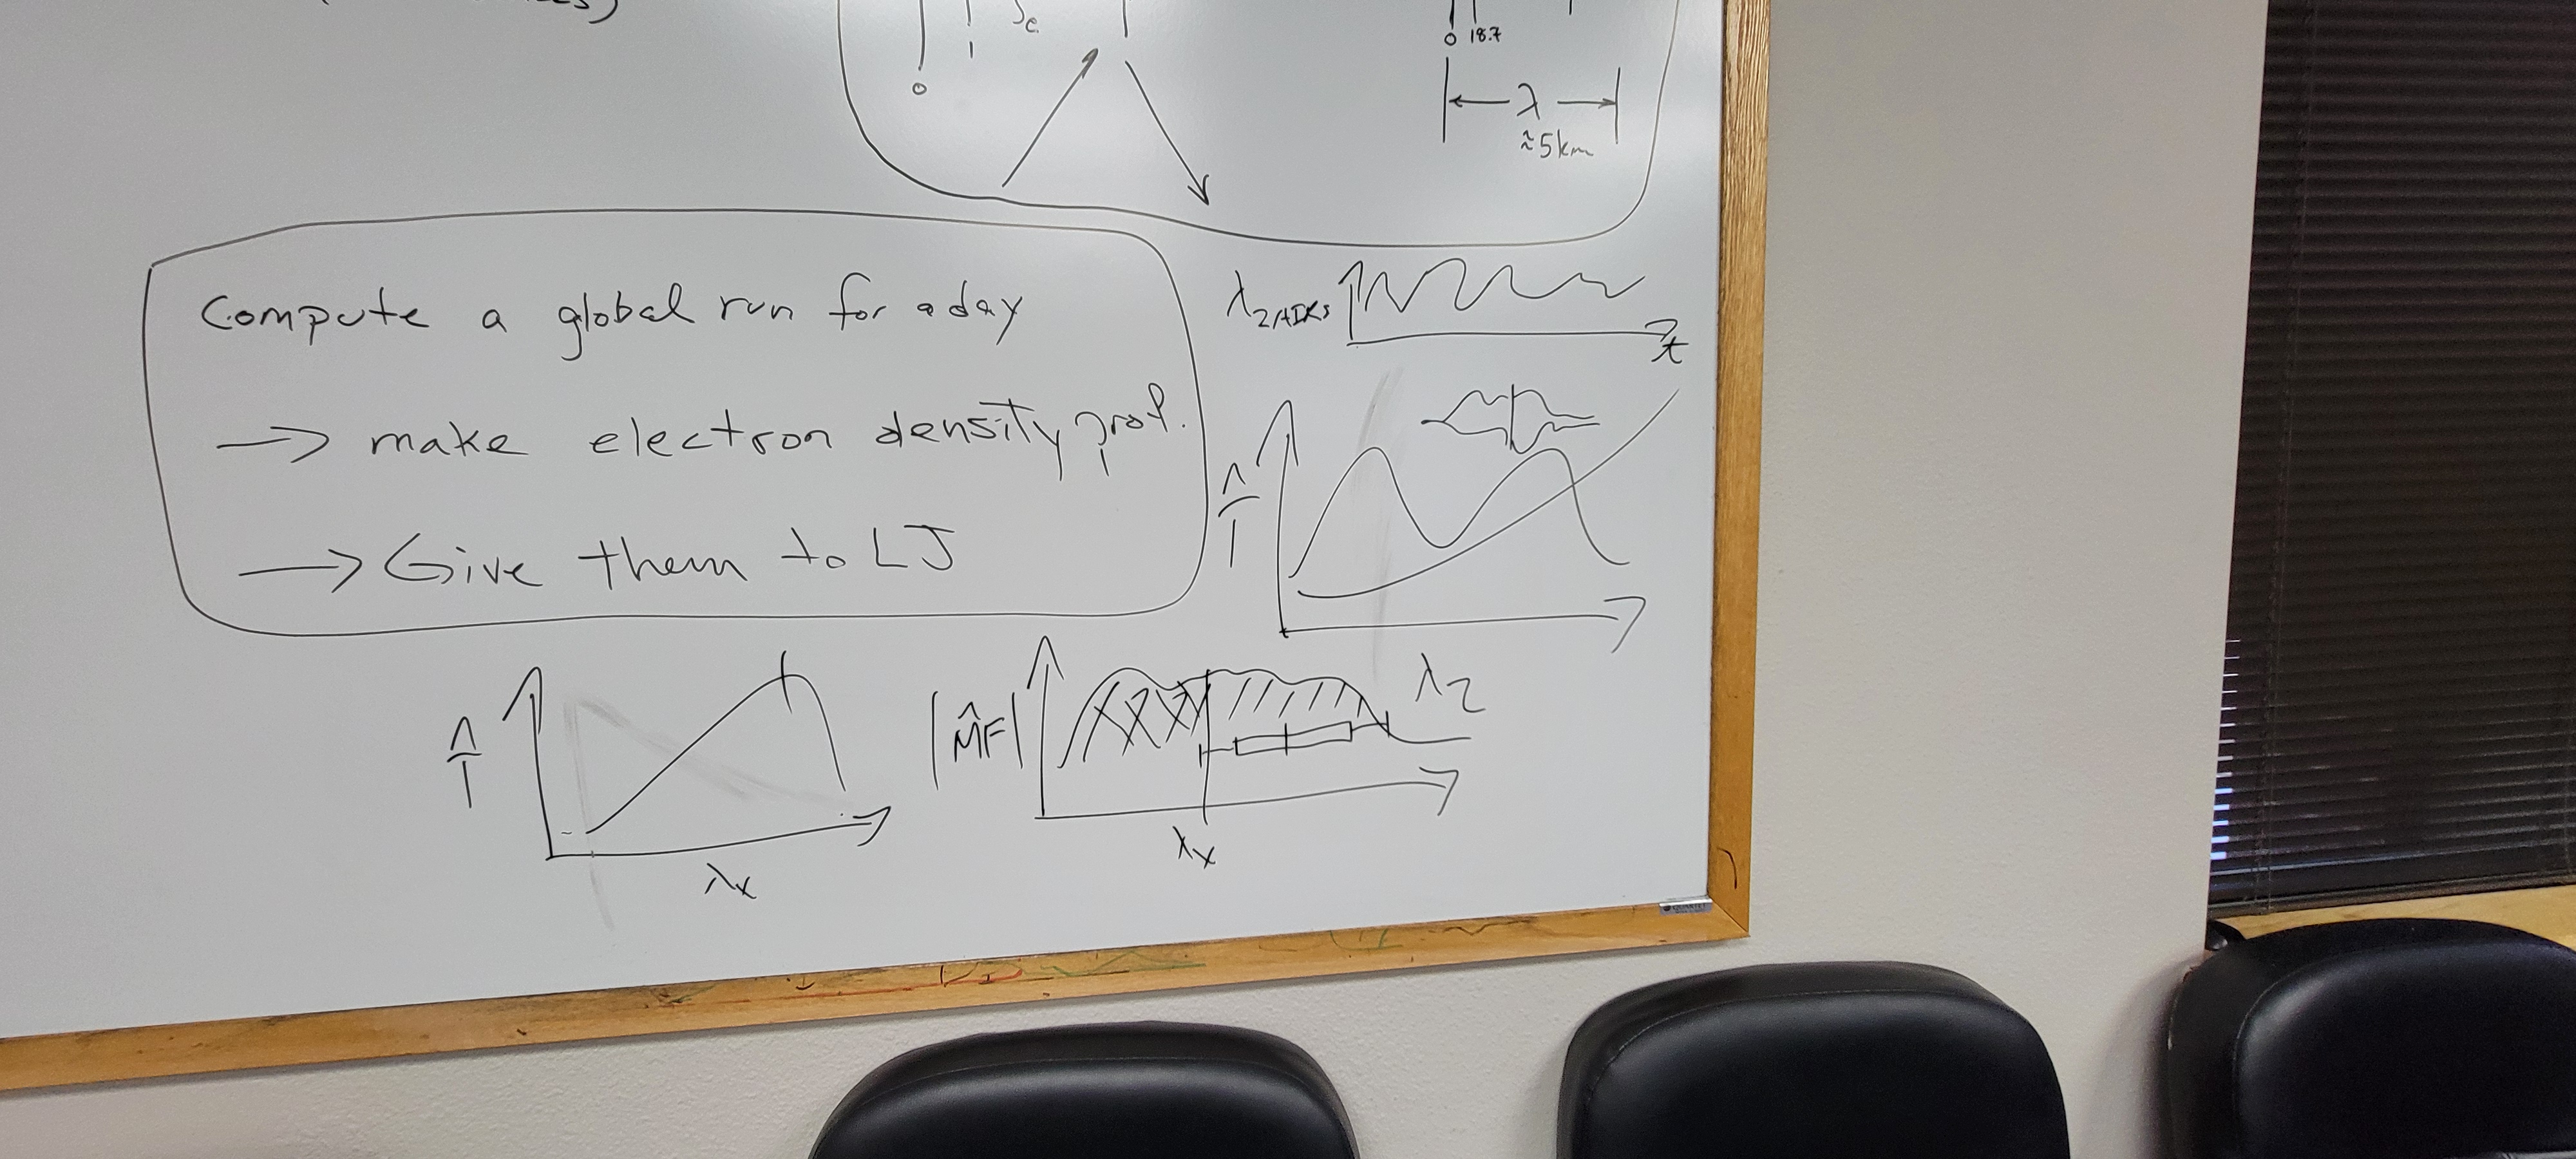 0
1
0 18.7
λ
≈5km
Compute a global run for a day
→ make electron density prof.
→ Give them to LJ
t
λx
|M̂F|
λz
λx